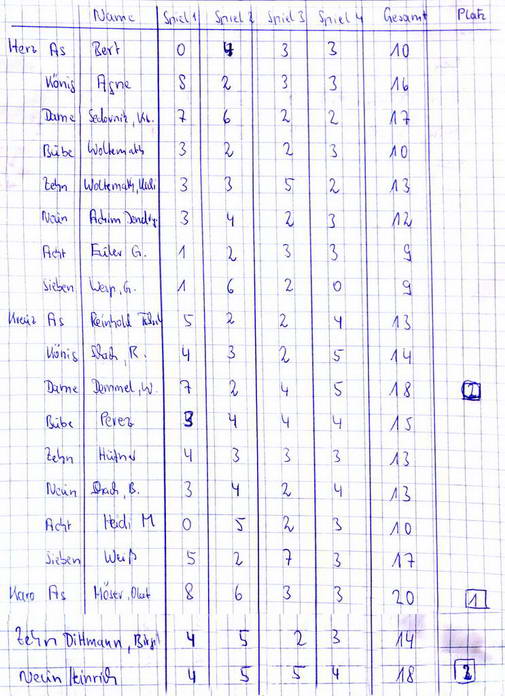 Name Spiel 1 Spiel 2 Spiel 3 Spiel 4 Gesamt Platz
Herz As Bert 0 4 3 3 10
König Agne 8 2 3 3 16
Dame 7 6 2 2 17
Bube Woltemath 3 2 2 3 10
Zehn Woltemath, 3 3 5 2 13
Neun Achim 3 4 2 3 12
Acht Euler G. 1 2 3 3 9
Sieben G. 1 6 2 0 9
Kreuz As Reinhold 5 2 2 4 13
König R. 4 3 2 5 14
Dame Demmel, W. 7 2 4 5 18 2
Bube Perez 3 4 4 4 15
Zehn Hüfner 4 3 3 3 13
Neun B. 3 4 2 4 13
Acht Heidi M 0 5 2 3 10
Sieben Weiß 5 2 7 3 17
Karo As Möser, Olaf 8 6 3 3 20 1
Zehn Dittmann, 4 5 2 3 14
Neun Heinrich 4 5 5 4 18 2